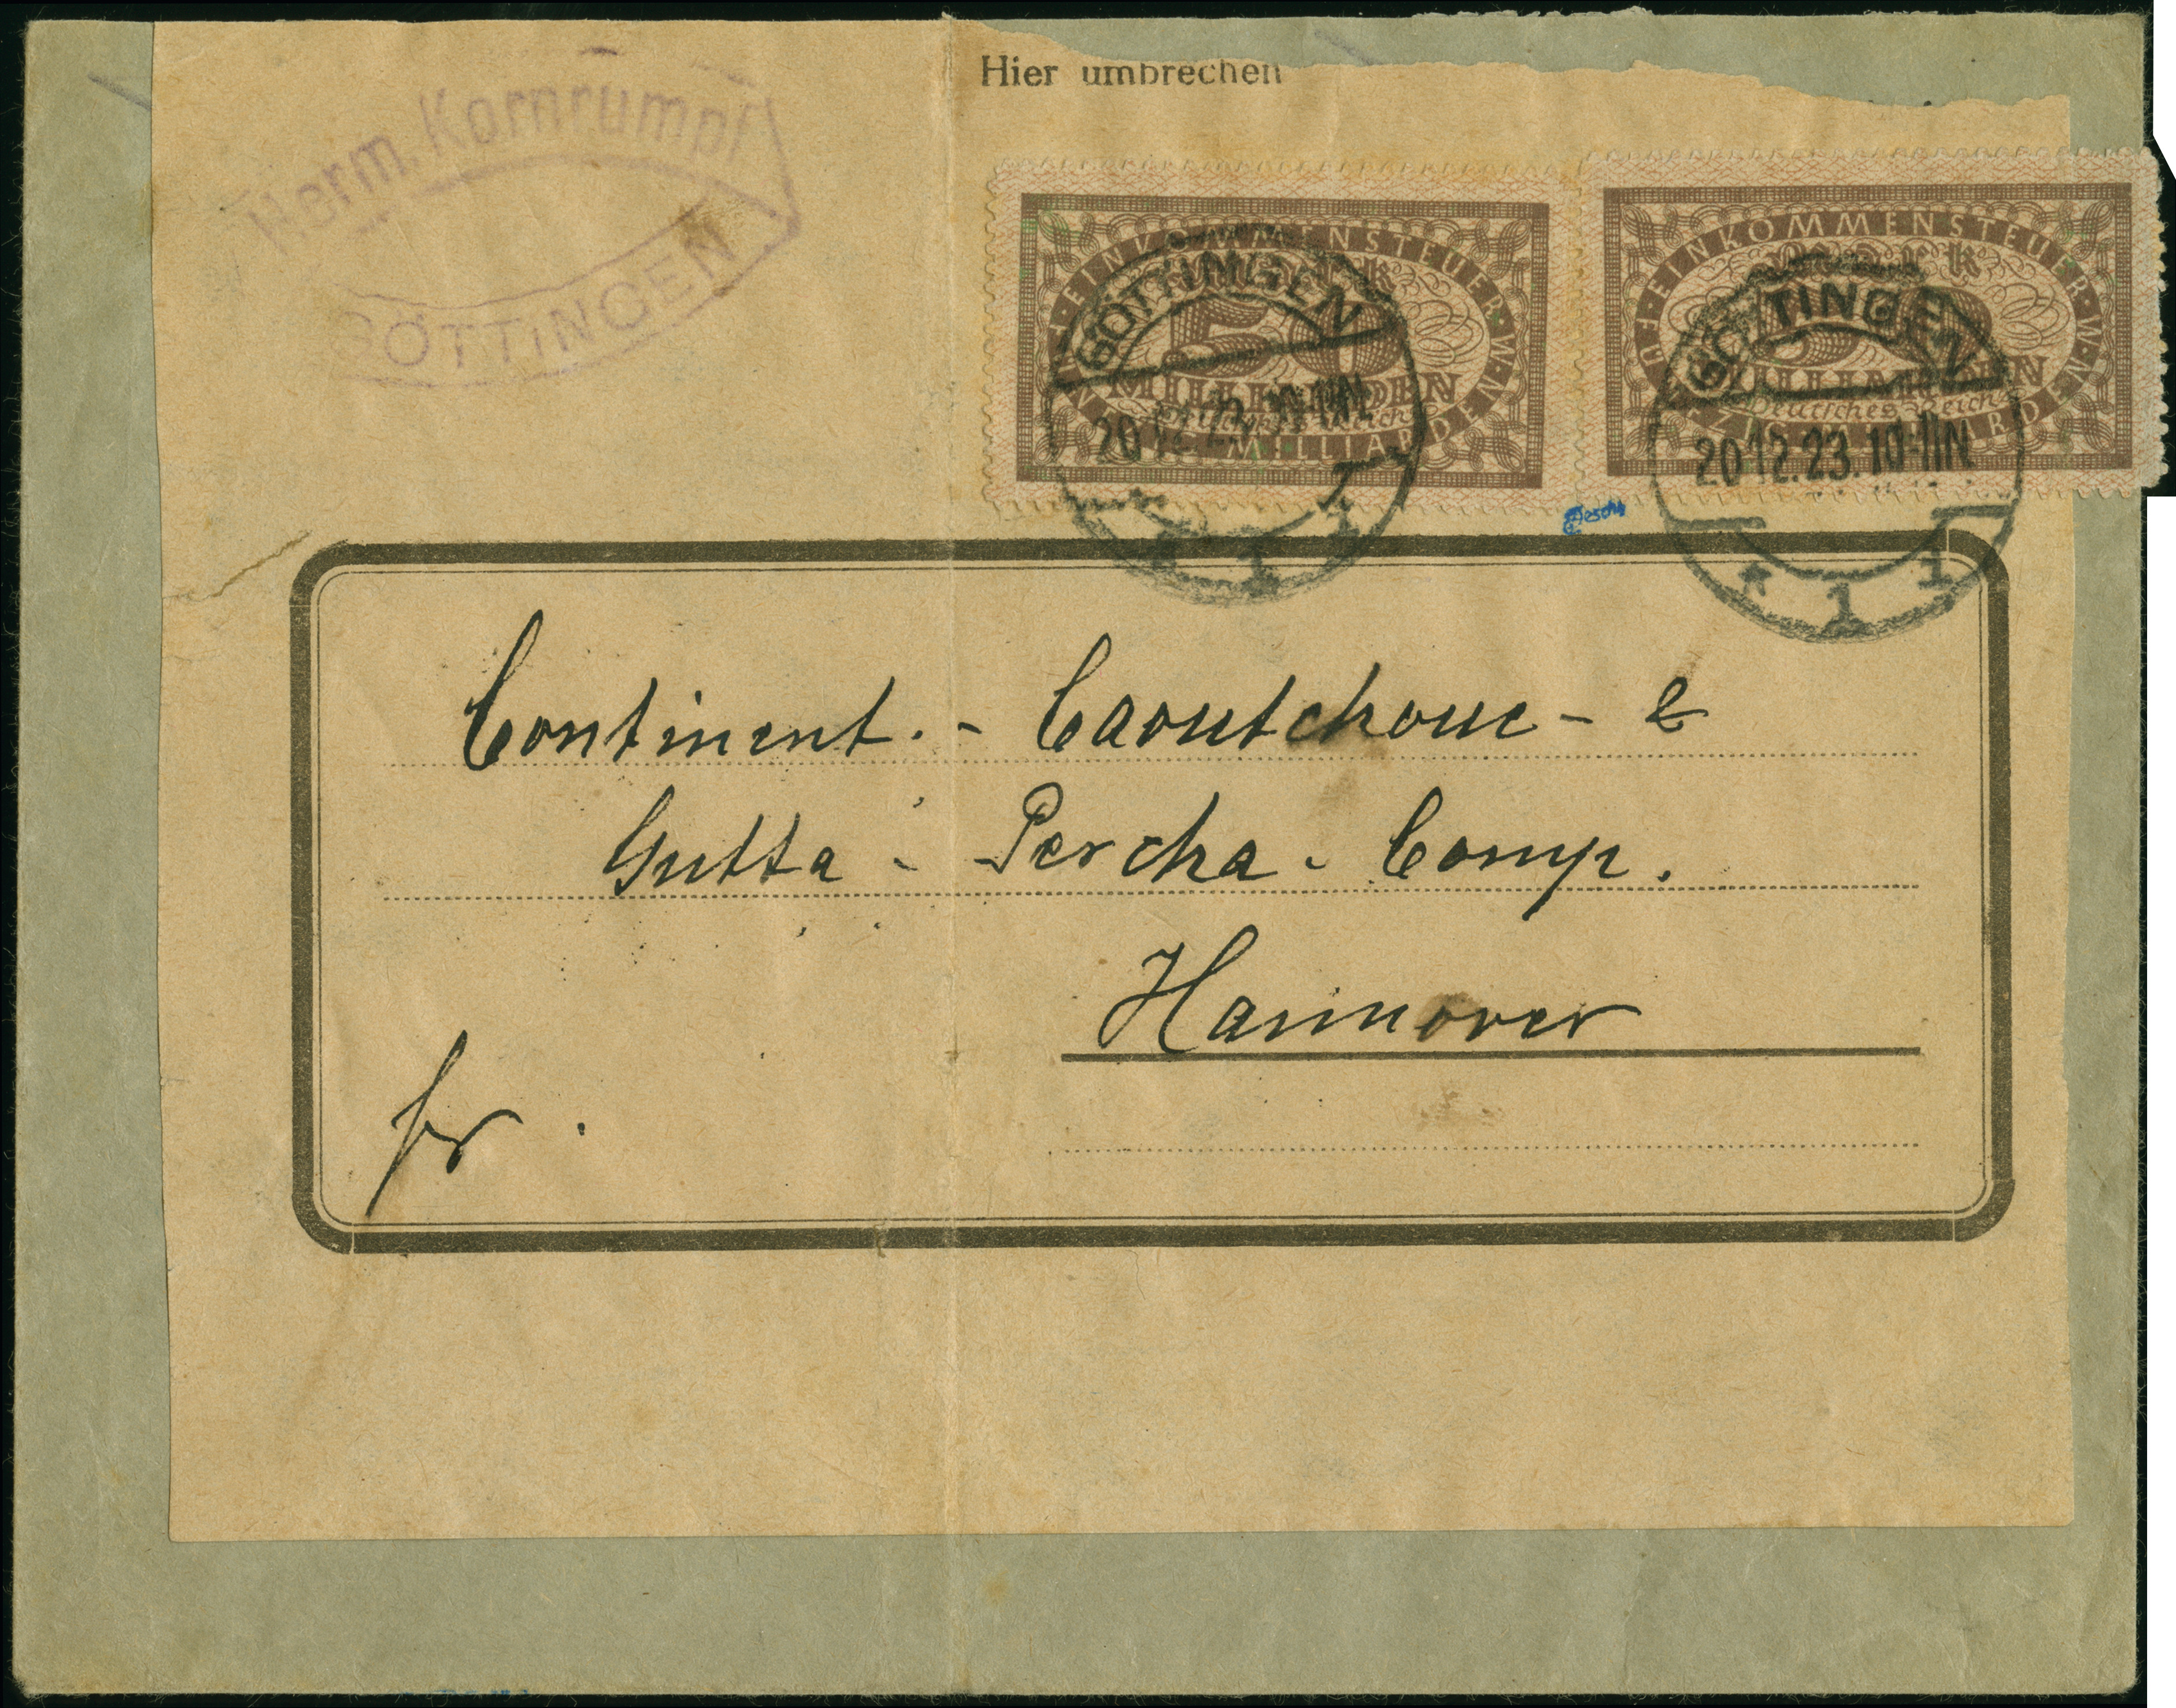 Hier umbrechen
Herm. Kornrumpf
GÖTTINGEN
EINKOMMENSTEUER
MARK
50
MILLIARDEN
Deutsches Reich
FÜNFZIG MILLIARDEN
GÖTTINGEN
20.12.23. 10-11N
* 1 1
EINKOMMENSTEUER
MARK
50
MILLIARDEN
Deutsches Reich
FÜNFZIG MILLIARDEN
GÖTTINGEN
20.12.23. 10-11N
* 1 1
Continent. - Caoutchouc - &
Gutta - Percha - Comp.
Hannover
fr.